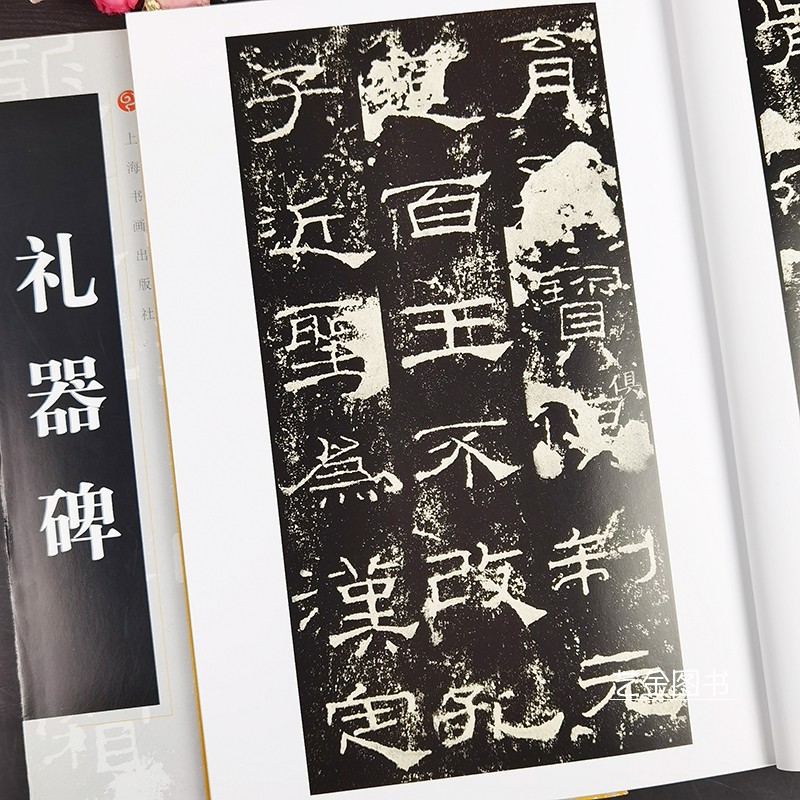 礼器碑
上海书画出版社
育寶俱制元
道百王不改孔
子近聖為漢定
金图书